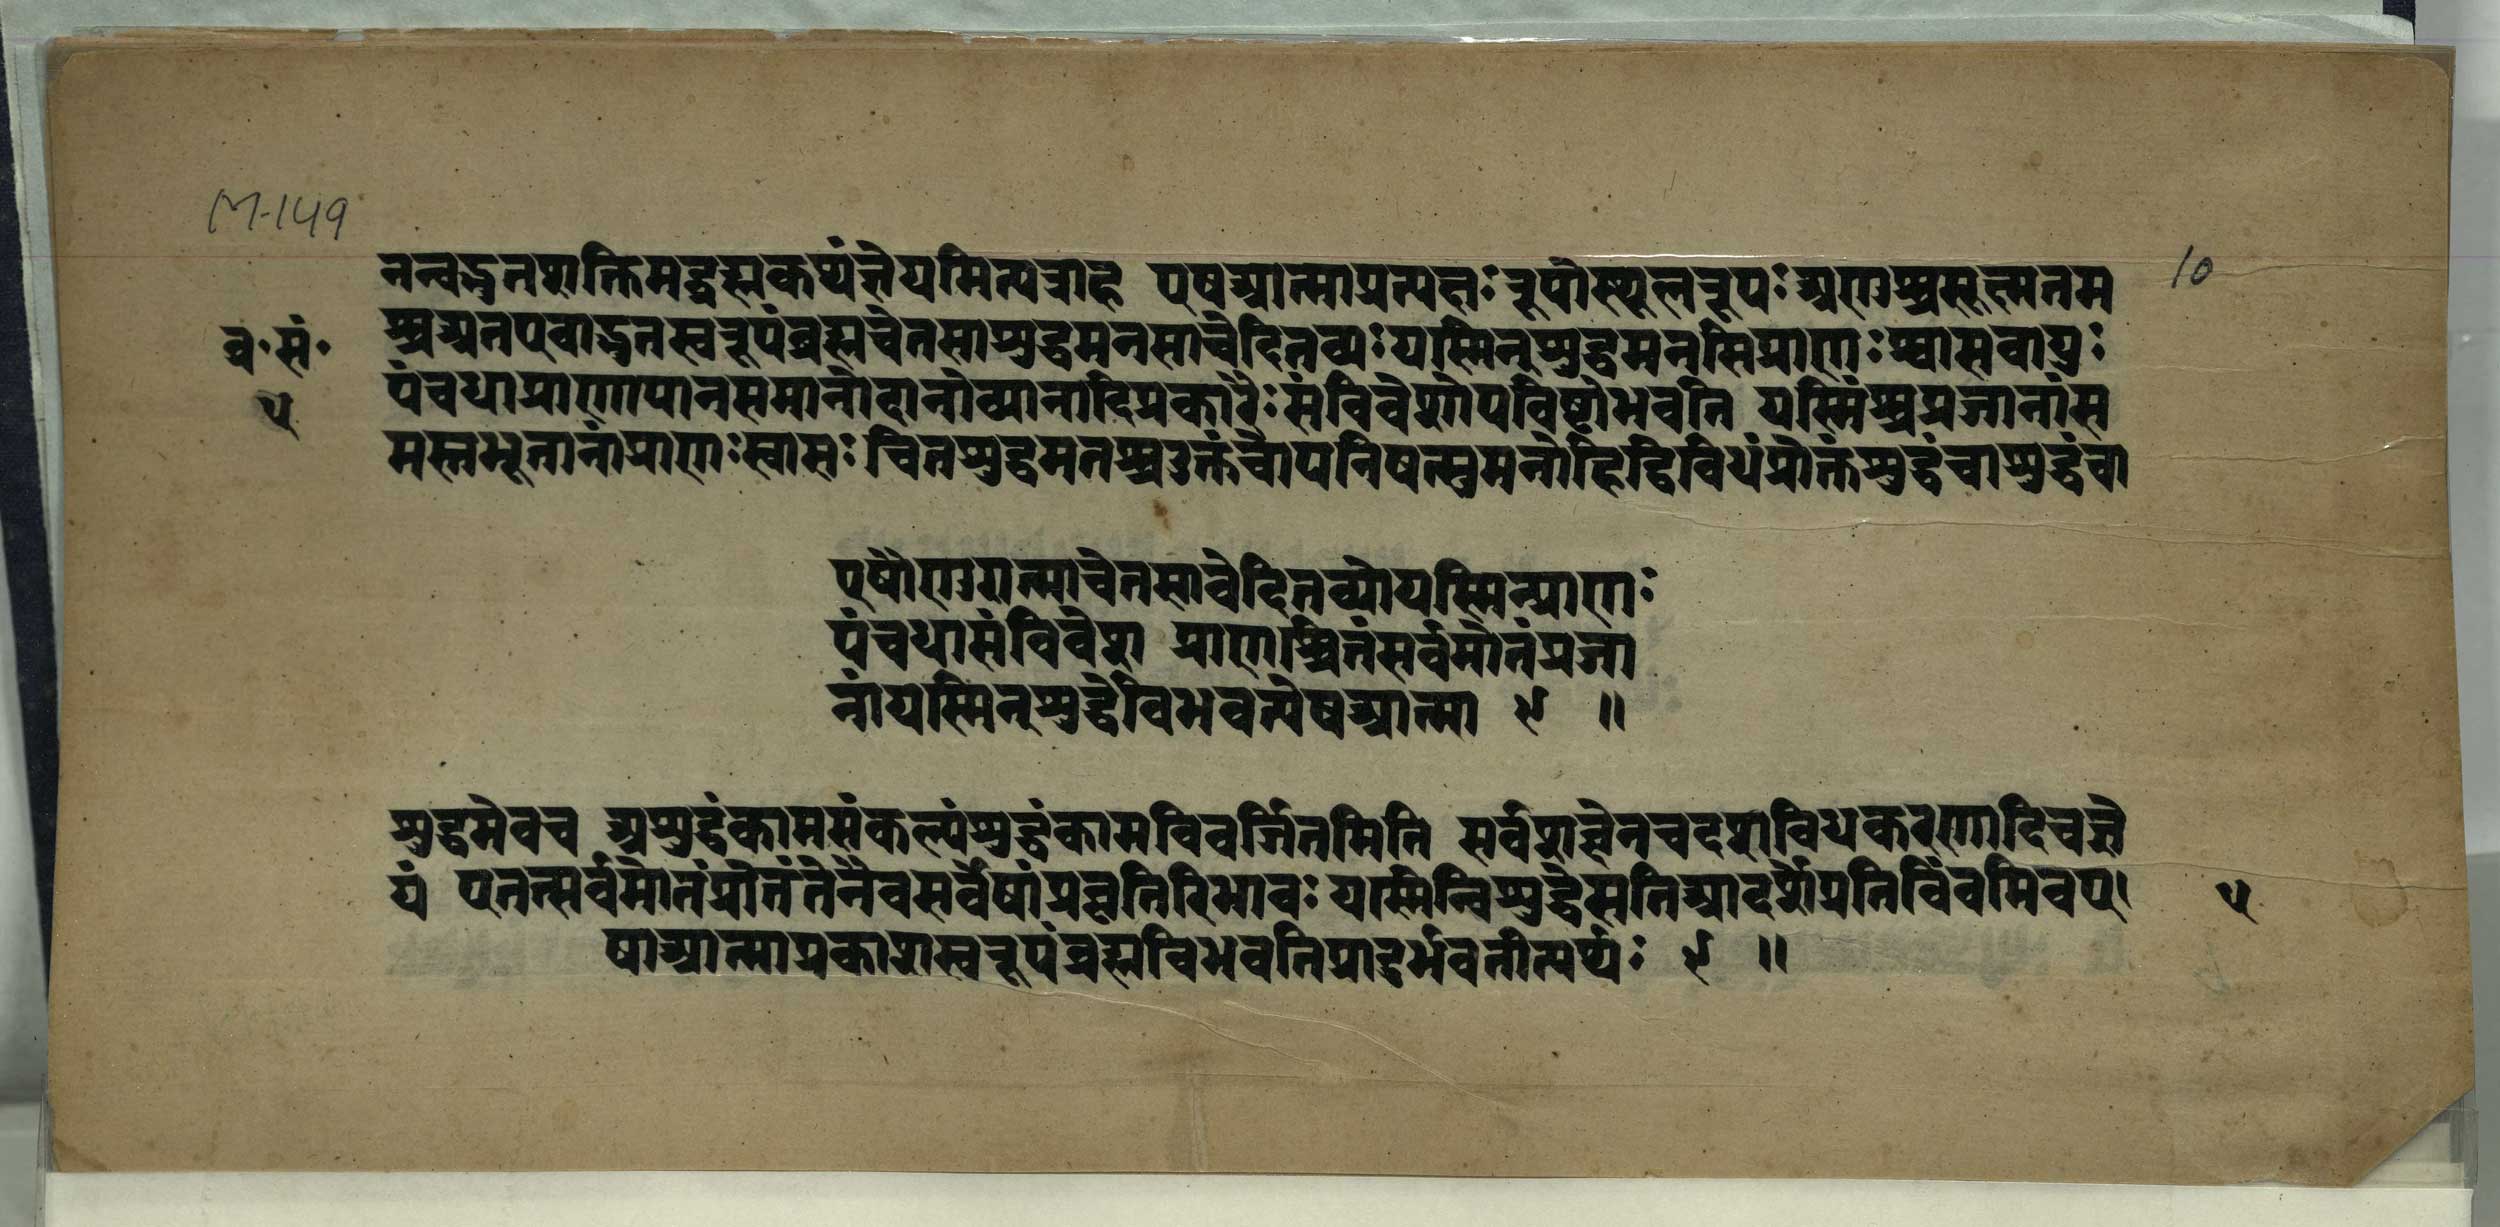 M-149
10
नन्वद्भुतशक्तिमद्ब्रह्मकथंज्ञेयमित्यत्राह एषआत्माप्रत्यक्षःरूपीस्थूलरूपःअणुश्चसूक्ष्मतम
श्चअतएवाद्भुतस्वरूपंब्रह्मचेतसाशुद्धमनसावेदितव्यःयस्मिन्शुद्धमनसिप्राणःश्वासवायुः
व्र॰सं॰
पंचधाप्राणापानसमानोदानोव्यानादिप्रकारैःसंविवेशोपविष्टोभवति यस्मिंश्चप्रजानांस
५
मस्तभूतानांप्राणःस्वासःचित्तशुद्धमतश्चउक्तंचोपनिषत्सुमनोहिद्विविधंप्रोक्तंशुद्धंचाशुद्धंवा
एषोणुरात्माचेतसावेदितव्योयस्मिन्प्राणः
पंचधासंविवेश प्राणश्चितंसर्वमोतंप्रजा
नांयस्मिन्शुद्धेविभवत्येषआत्मा ९ ॥
शुद्धमेवच अशुद्धंकामसंकल्पंशुद्धंकामविवर्जितमिति सर्वशब्देनचदशविधकरणादिचज्ञे
यं एतत्सर्वमोतंप्रोतंतेनैवसर्वेषांप्रवृत्तिरिभावः यस्मिन्विशुद्धेसतिआदर्शेप्रतिबिंबमिवए।
५
षाआत्माप्रकाशस्वरूपंब्रह्मविभवतिप्रादुर्भवतीत्यर्थः ९ ॥